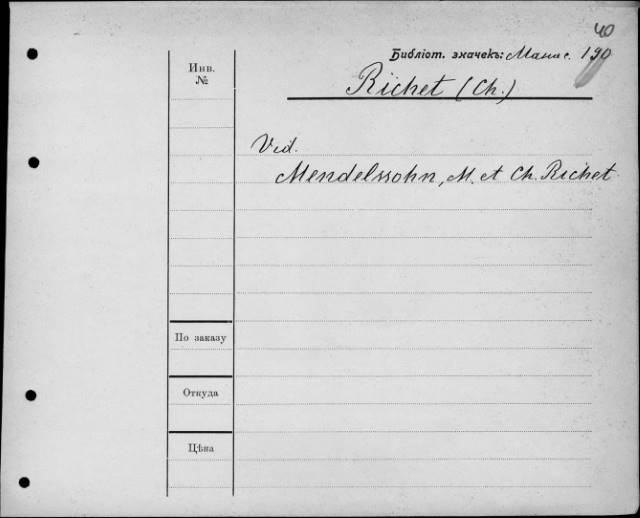 40
Библіот. значекъ: Манас. 190
Richet (Ch.)
Инв.
№
Vid.
Mendelssohn, M. et Ch. Richet
По заказу
Откуда
Цѣна